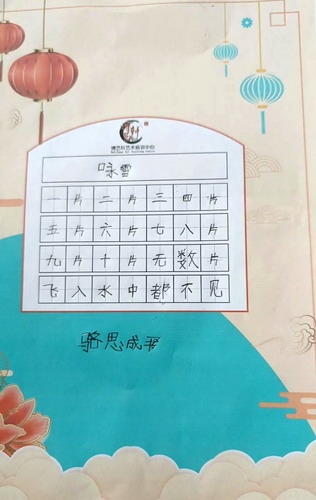 艺术培训中心
咏雪
一片二片三四片
五片六片七八片
九片十片无数片
飞入水中都不见
骆思成